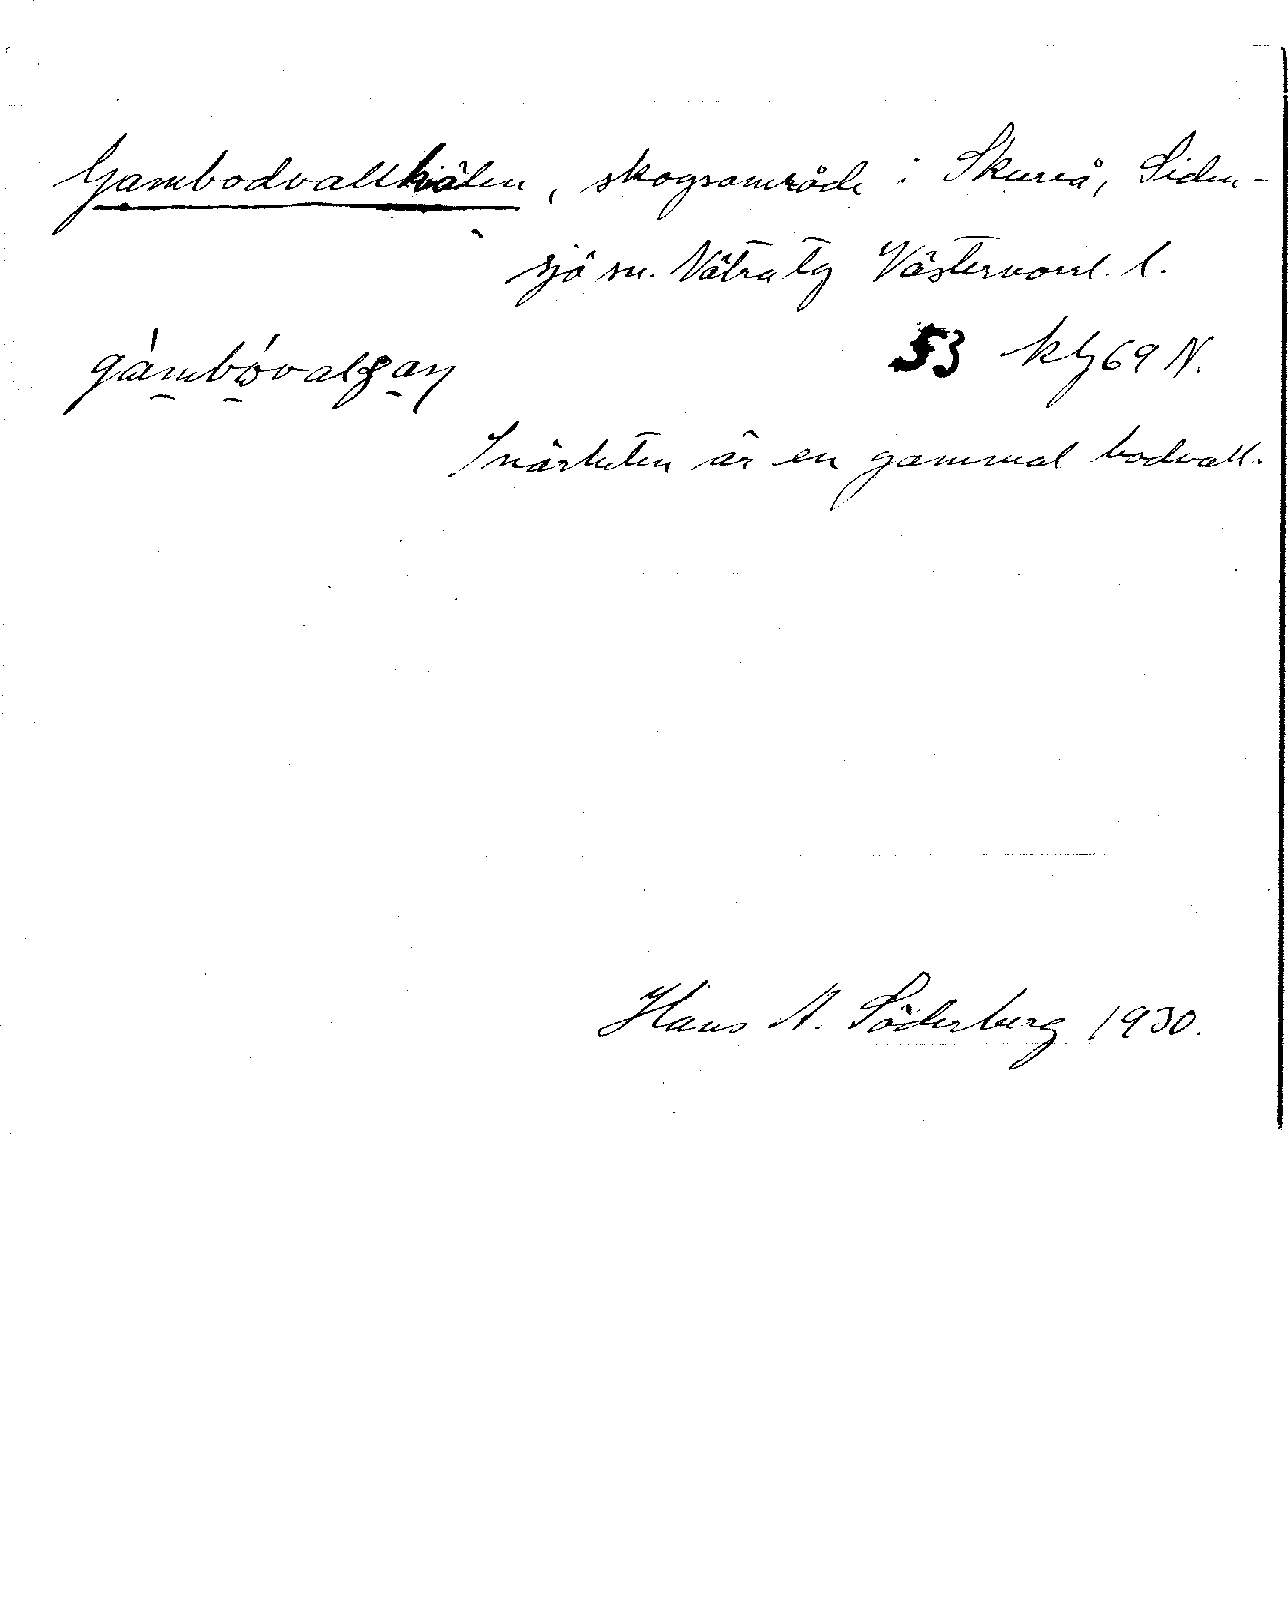 Gambodvallkälen, skogsområde i Skureå, Siden-
sjö sn. Nätra tg Västernorrl. l.
53 kbj 69 N.
I närheten är en gammal bodvall.
Hans A. Söderberg 1930.